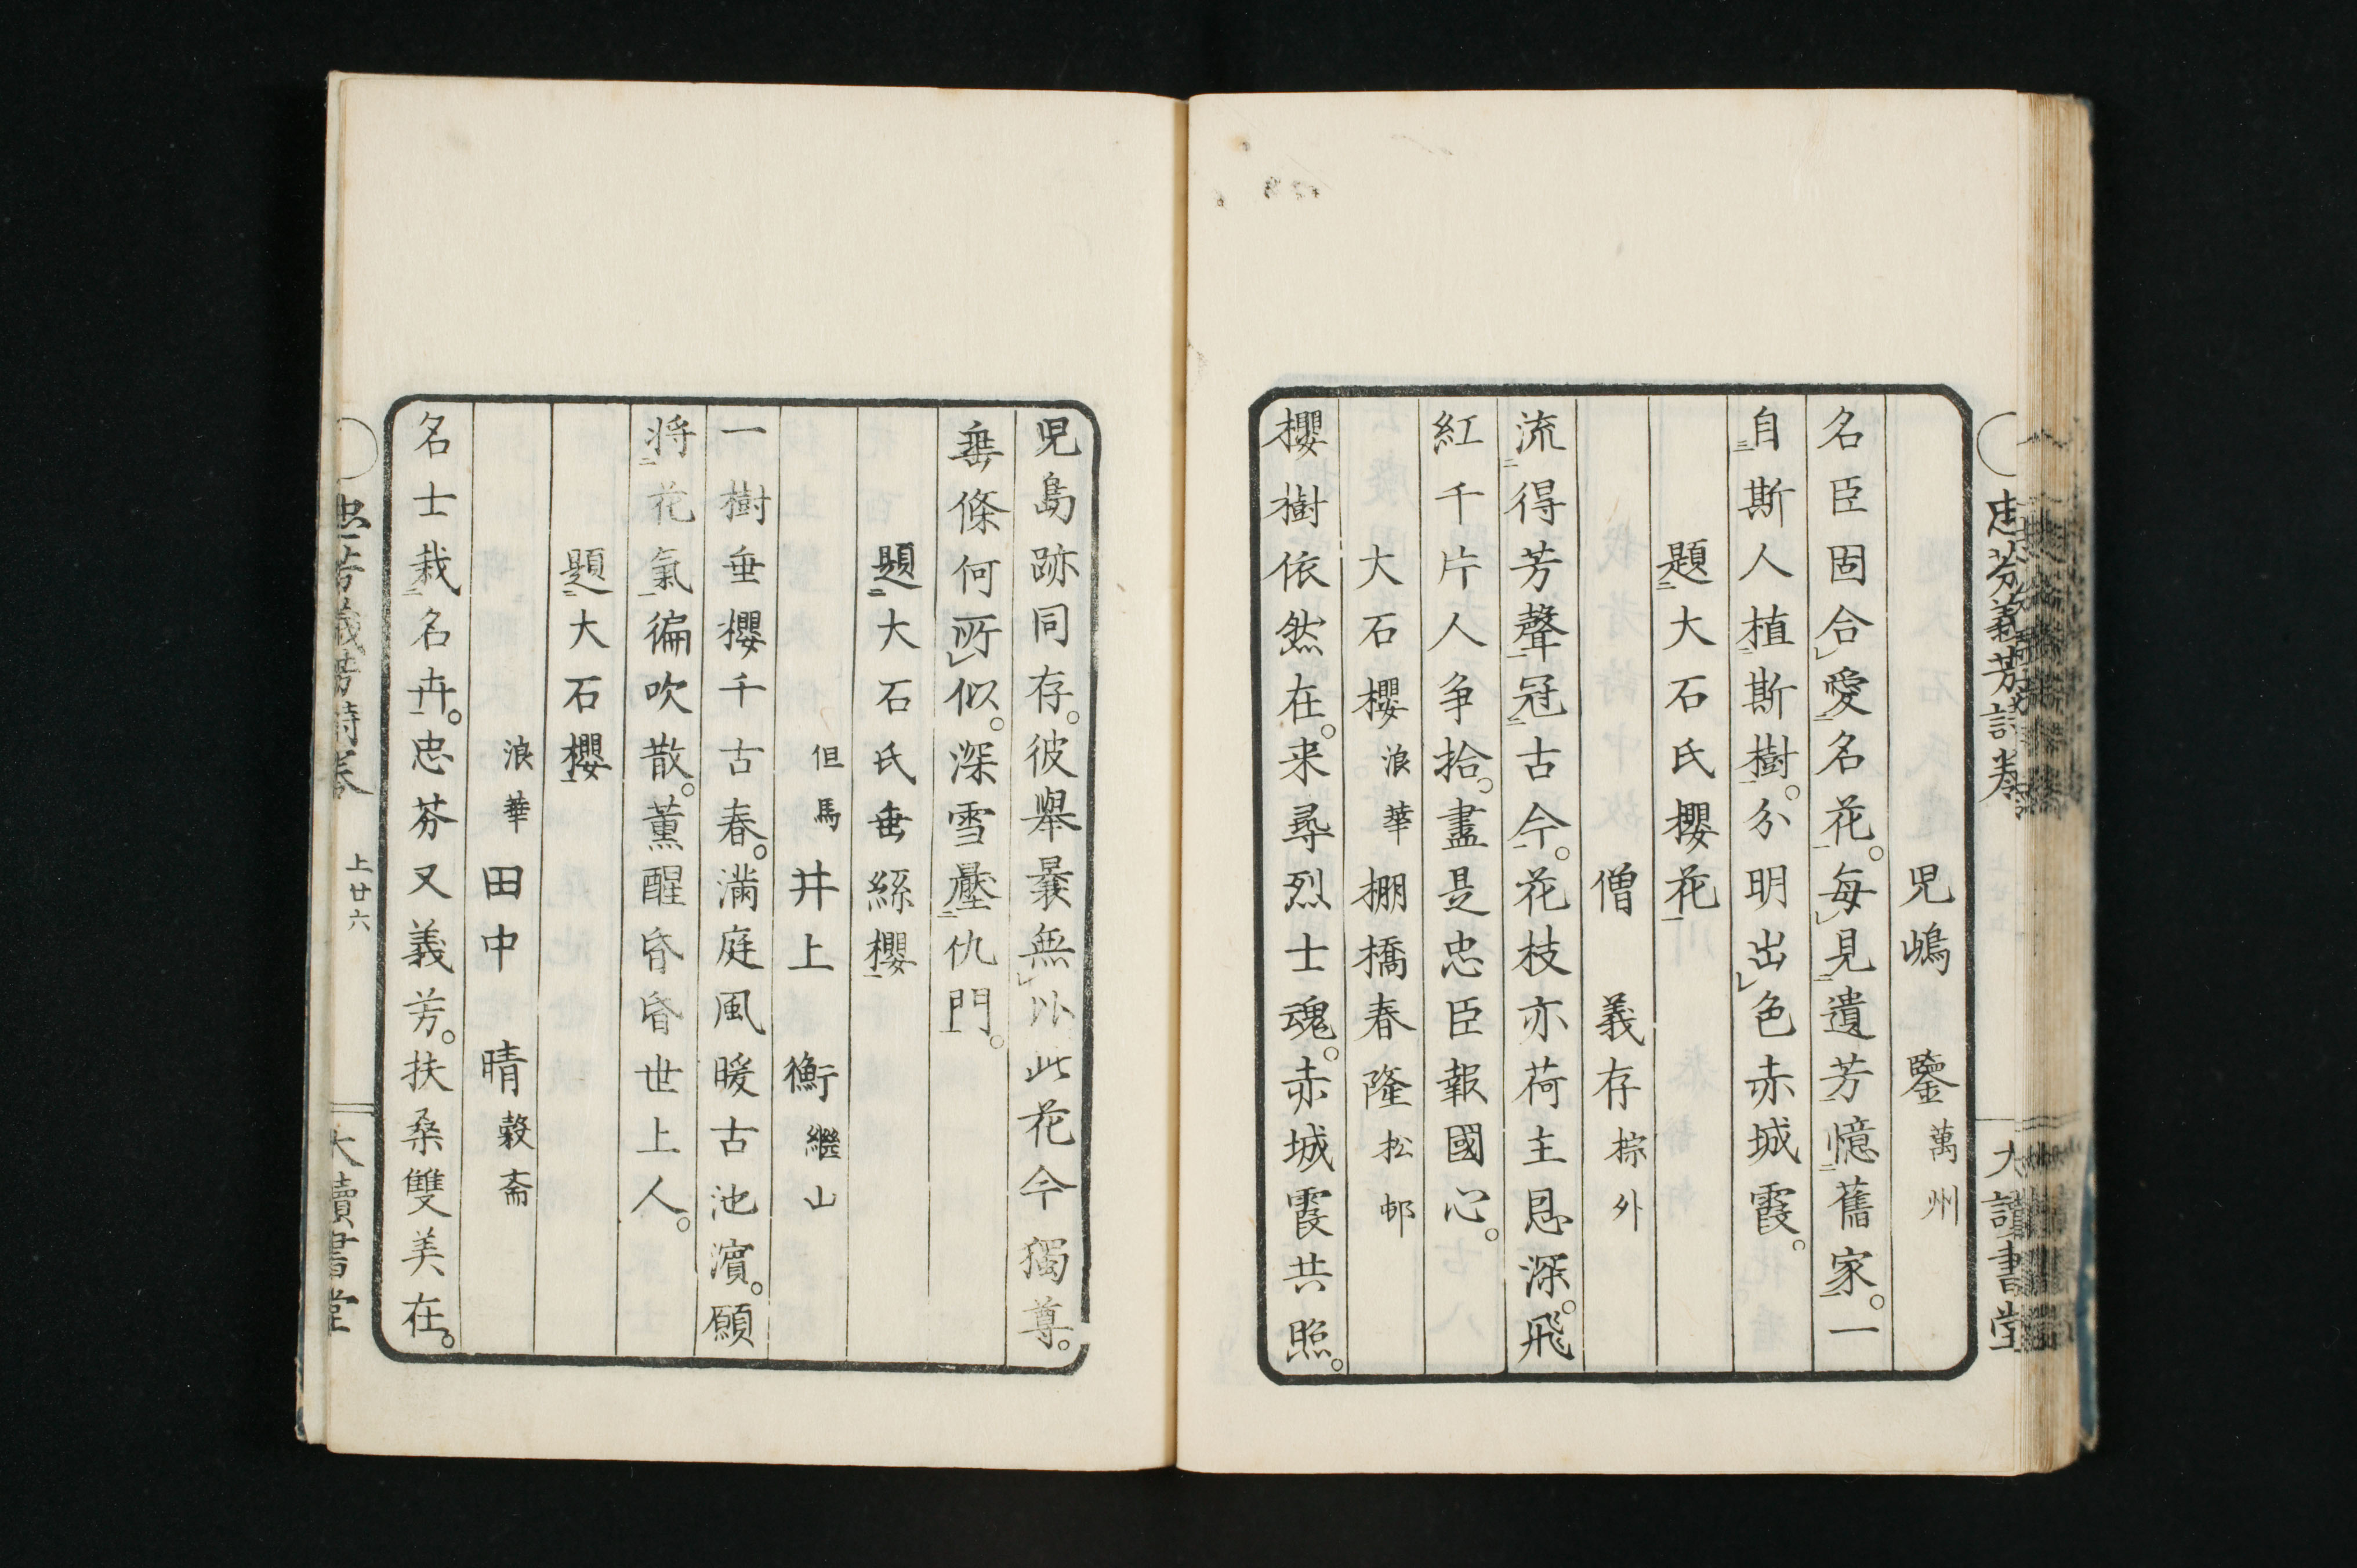 忠芬義芳詩卷
大讀書堂
児嶋 鑒 萬州
名臣固合愛名花。每見遺芳憶舊家。一
自斯人植斯樹。分明出色赤城霞。
題大石氏櫻花
僧 義存 棕外
流得芳聲冠古今。花枝亦荷主恩深。飛
紅千片人爭拾。盡是忠臣報國心。
大石櫻 浪華 棚橋春隆 松邨
櫻樹依然在。来尋烈士魂。赤城霞共照。
児島跡同存。彼舉曩無以此花今獨尊。
垂條何所似。深雪壓仇門。
題大石氏垂絲櫻
但馬 井上 衡 繼山
一樹垂櫻千古春。滿庭風暖古池濱。願
将花氣徧吹散。薰醒昏昏世上人。
題大石櫻
浪華 田中 晴 穀斎
名士栽名卉。忠芬又義芳。扶桑雙美在。
忠芬義芳詩卷
上廿六
大讀書堂